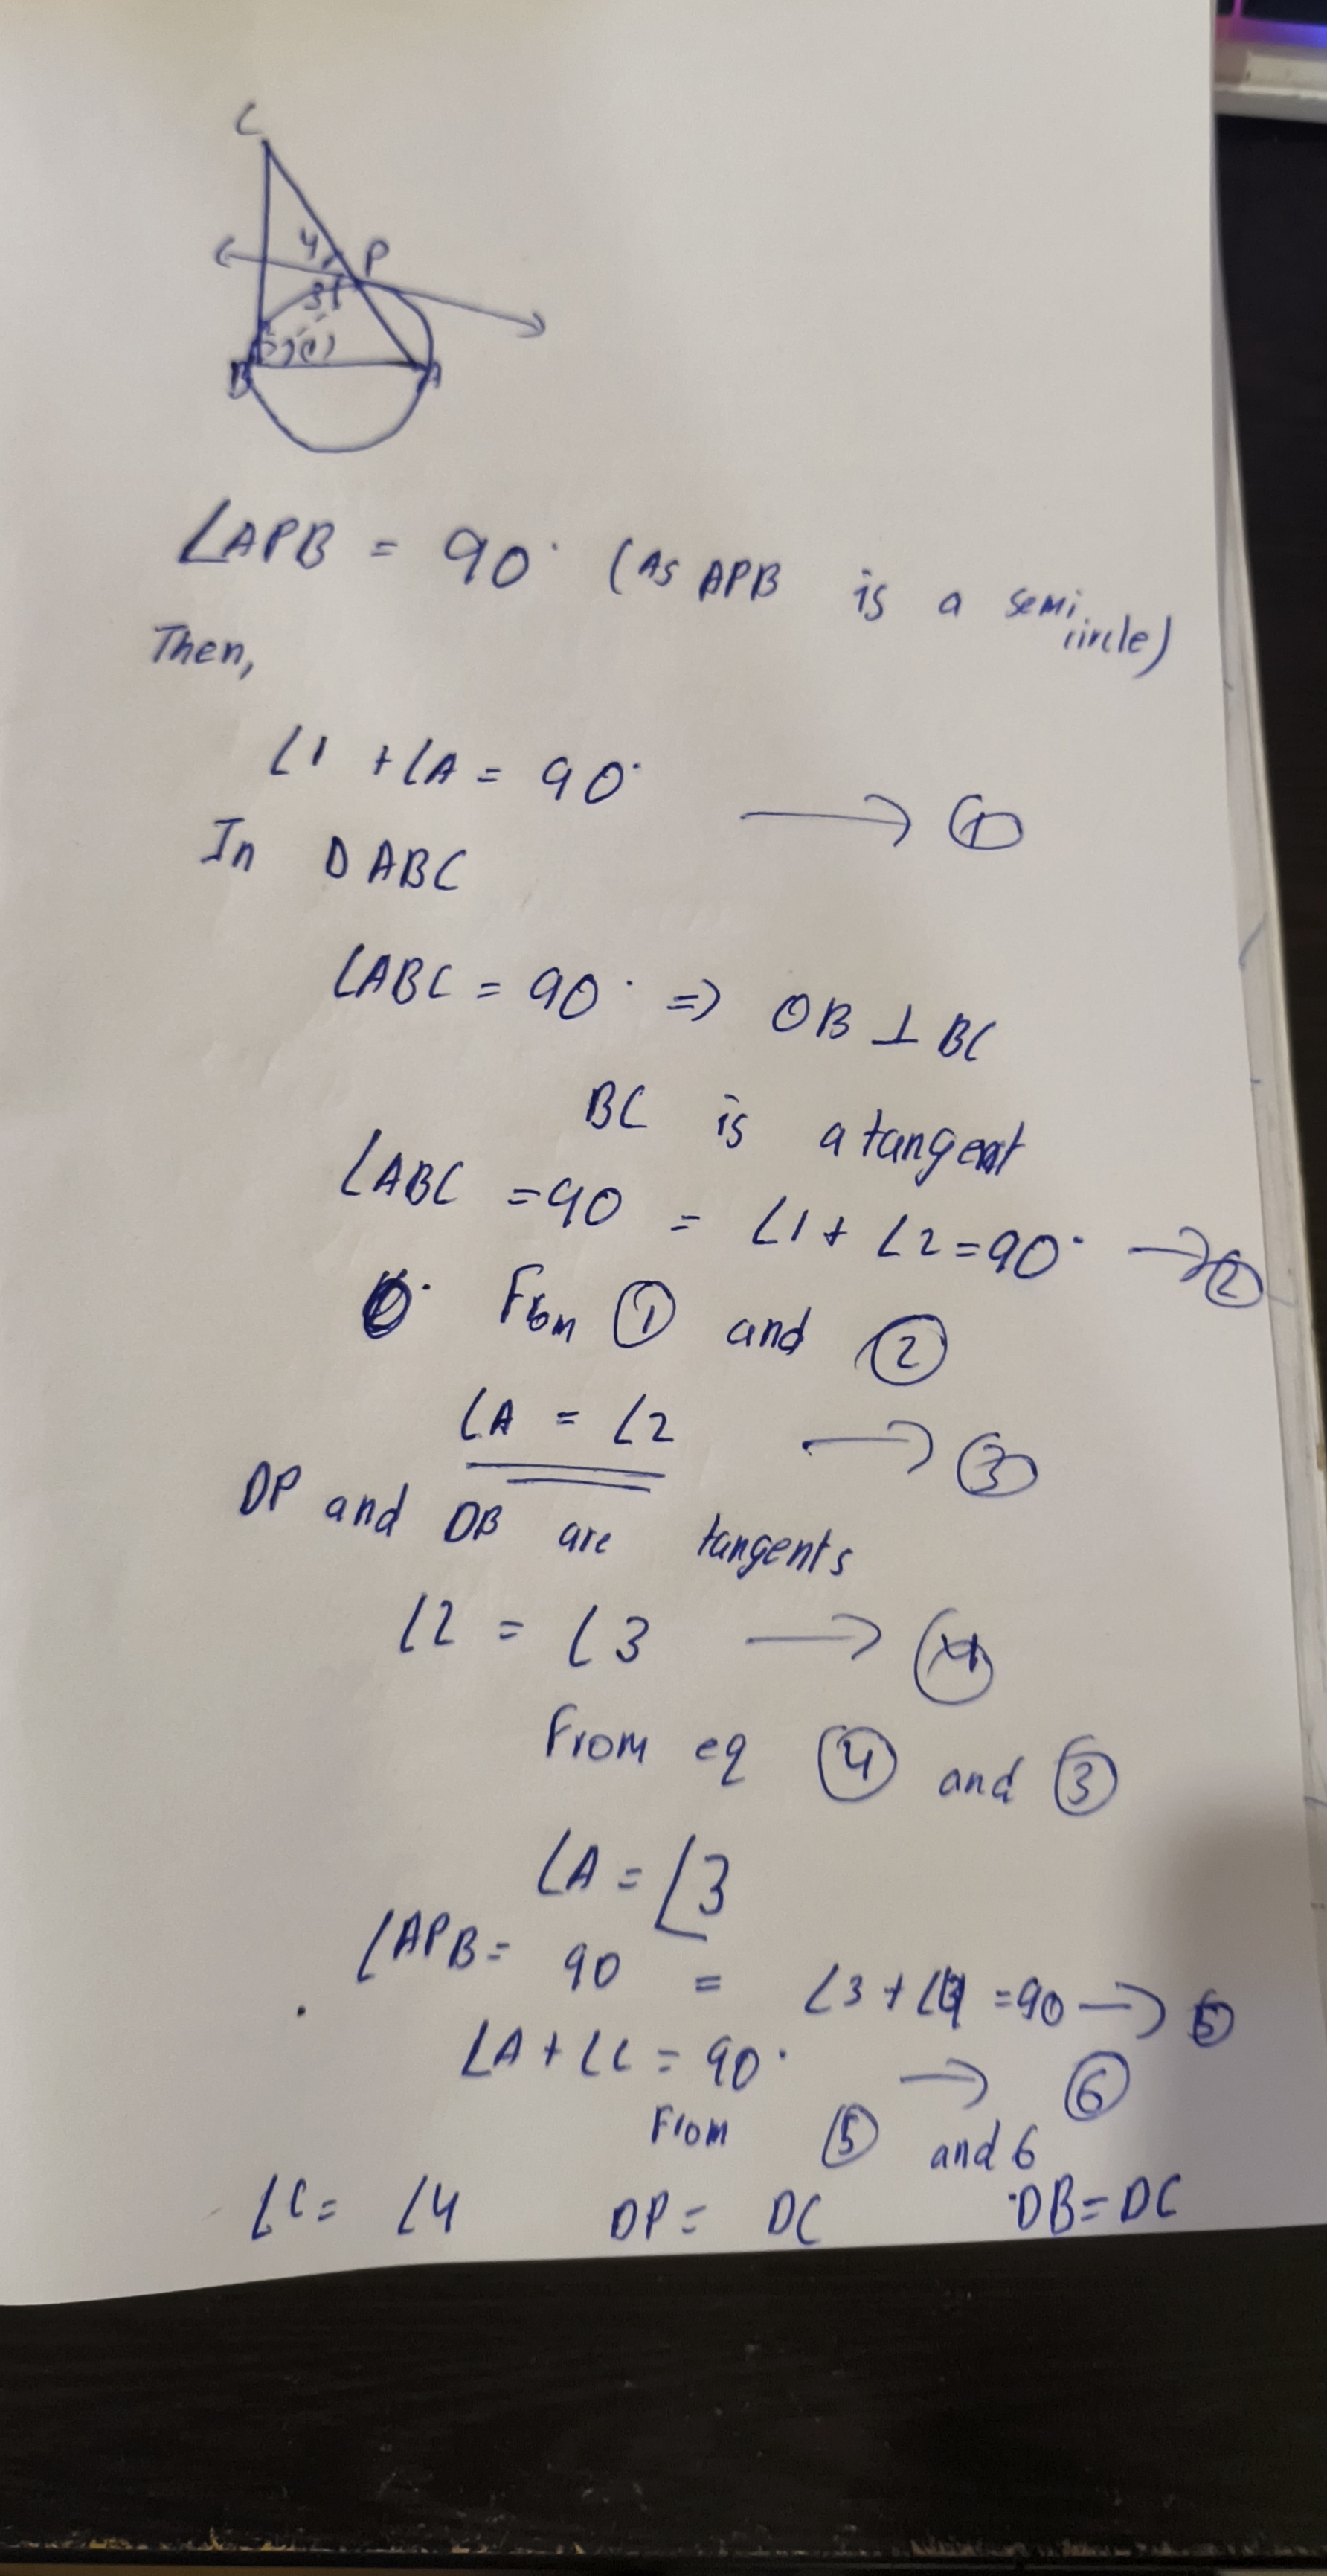 C
4
P
3
2 1
B A
∠APB = 90° (As APB is a semi circle)
Then,
∠1 + ∠A = 90° → ①
In ΔABC
∠ABC = 90° ⇒ OB ⊥ BC
BC is a tangent
∠ABC = 90 = ∠1 + ∠2 = 90° → ②
From ① and ②
∠A = ∠2 → ③
DP and DB are tangents
∠2 = ∠3 → ④
From eq ④ and ③
∠A = ∠3
∠APB = 90 = ∠3 + ∠4 = 90 → ⑤
∠A + ∠C = 90° → ⑥
From ⑤ and 6
∠C = ∠4 DP = DC DB = DC